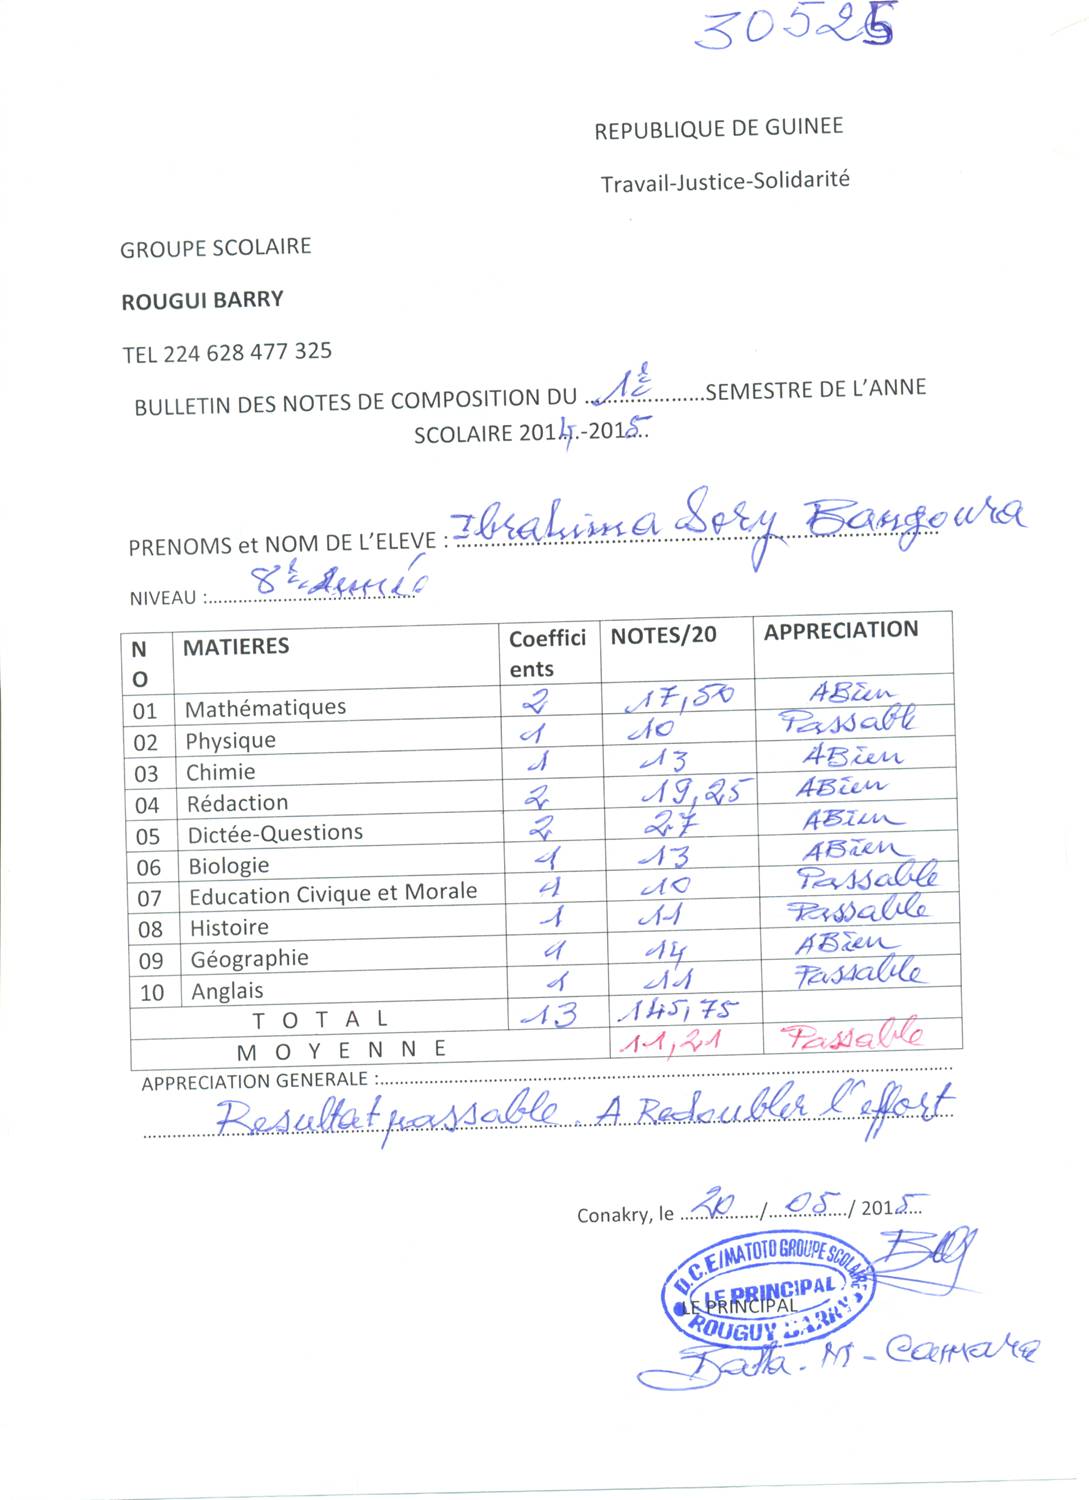 30525
REPUBLIQUE DE GUINEE
Travail-Justice-Solidarité
GROUPE SCOLAIRE
ROUGUI BARRY
TEL 224 628 477 325
BULLETIN DES NOTES DE COMPOSITION DU ...1è...SEMESTRE DE L'ANNE
SCOLAIRE 2014-2015
PRENOMS et NOM DE L'ELEVE : Ibrahima Sory Bangoura
NIVEAU : 8è Année
NO MATIERES Coefficients NOTES/20 APPRECIATION
01 Mathématiques 2 17,50 ABien
02 Physique 1 10 Passable
03 Chimie 1 13 ABien
04 Rédaction 2 19,25 ABien
05 Dictée-Questions 2 27 ABien
06 Biologie 1 13 ABien
07 Education Civique et Morale 1 10 Passable
08 Histoire 1 11 Passable
09 Géographie 1 14 ABien
10 Anglais 1 11 Passable
TOTAL 13 145,75
MOYENNE 11,21 Passable
APPRECIATION GENERALE :
Resultat passable. A Redoubler l'effort
Conakry, le 20/05/2015
D.C.E/MATOTO GROUPE SCOLAIRE
LE PRINCIPAL
LE PRINCIPAL
ROUGUY BARRY
M - Camara